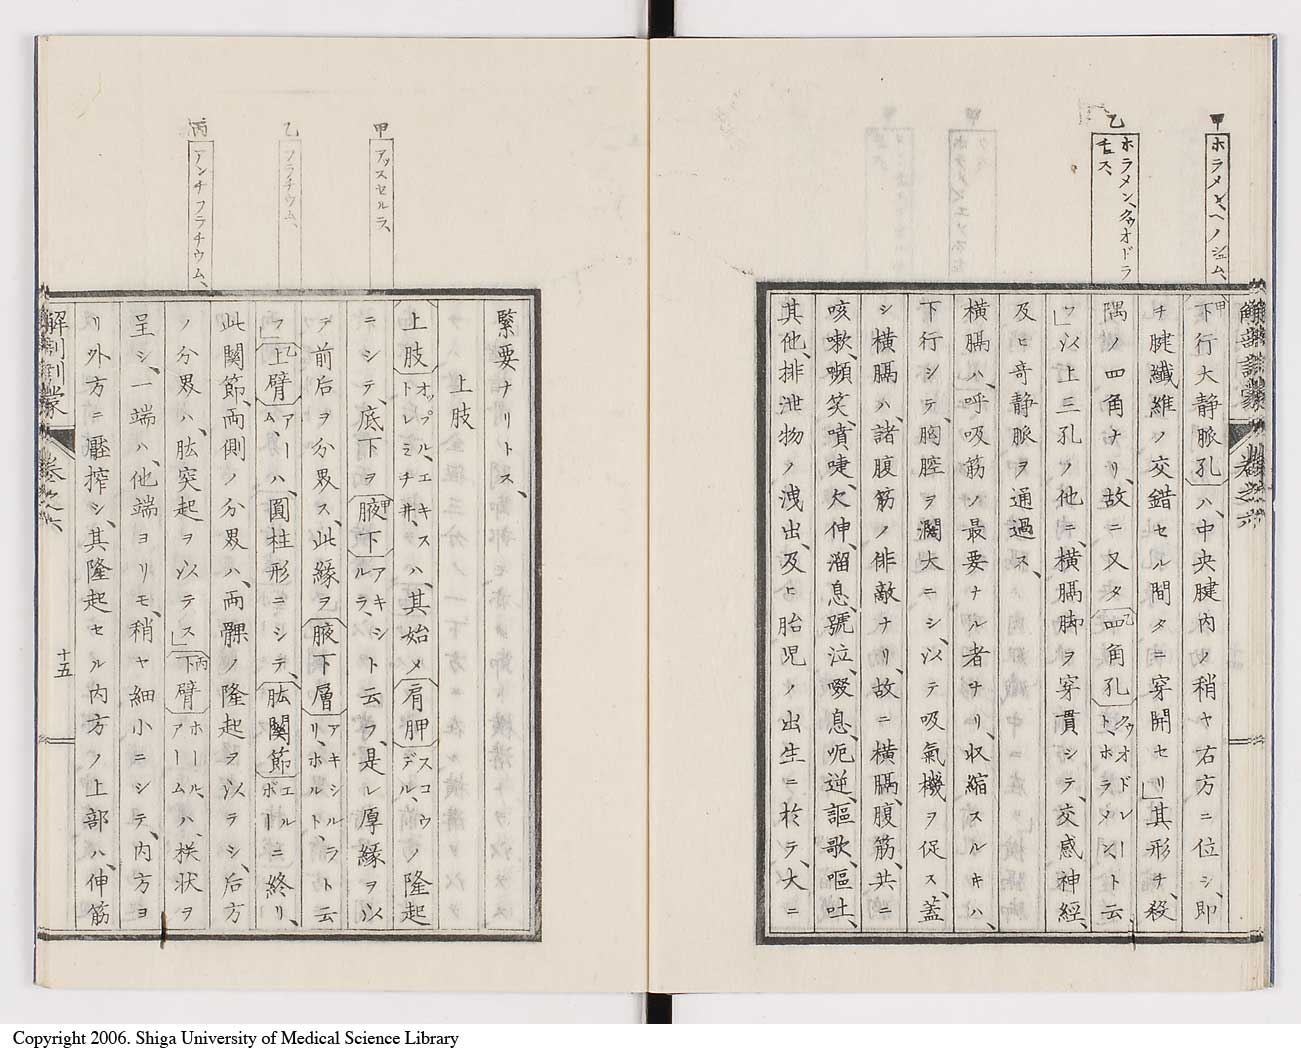 甲
ホラメン、ヘノシュム、
乙
ホラメン、クゥオドラ
チュス、
下行大静脈孔ハ、中央腱内ノ稍ヤ右方ニ位シ、即
チ腱纖維ノ交錯セル間タニ穿開セリ」其形チ、殺
隅ノ四角ナリ、故ニ又タ四角孔クゥオドレートホラメント云
フ」以上三孔ノ他ニ、横膈脚ヲ穿貫シテ、交感神經、
及ヒ奇静脈ヲ通過ス、
横膈ハ、呼吸筋ノ最要ナル者ナリ、収縮スルキハ、
下行シテ、胸腔ヲ濶大ニシ、以テ吸氣機ヲ促ス、蓋
シ横膈ハ、諸腹筋ノ俳敵ナリ、故ニ横膈、腹筋、共ニ
咳嗽、嚬笑、噴嚏、欠伸、溜息、號泣、啜息、呃逆、謳歌、嘔吐、
其他、排泄物ノ洩出、及ヒ胎児ノ出生ニ於ラ、大ニ
解剖訓蒙 卷之六
甲
アッスセルラ、
乙
ブラチウム、
丙
アンチブラチウム、
緊要ナリトス、
上肢
上肢オップル、エキストレミチ井、ハ、其始メ肩胛スコウデル、ノ隆起
ニシテ、底下ヲ腋下アキシルラ、ト云フ、是レ厚緣ヲ以
テ前后ヲ分界ス、此緣ヲ腋下層アキシルラリ、ホルト、ト云
フ」上臂アーム、ハ、圓柱形ニシテ、肱關節エルボーニ終リ、
此関節、両側ノ分界ハ、両髁ノ隆起ヲ以ラシ、后方
ノ分界ハ、肱突起ヲ以テス」下臂ホール、アームハ、楔状ヲ
呈シ、一端ハ、他端ヨリモ、稍ヤ細小ニシテ、内方ヨ
リ外方ニ壓搾シ、其隆起セル内方ノ上部ハ、伸筋
解剖訓蒙 卷之六
十五
Copyright 2006. Shiga University of Medical Science Library